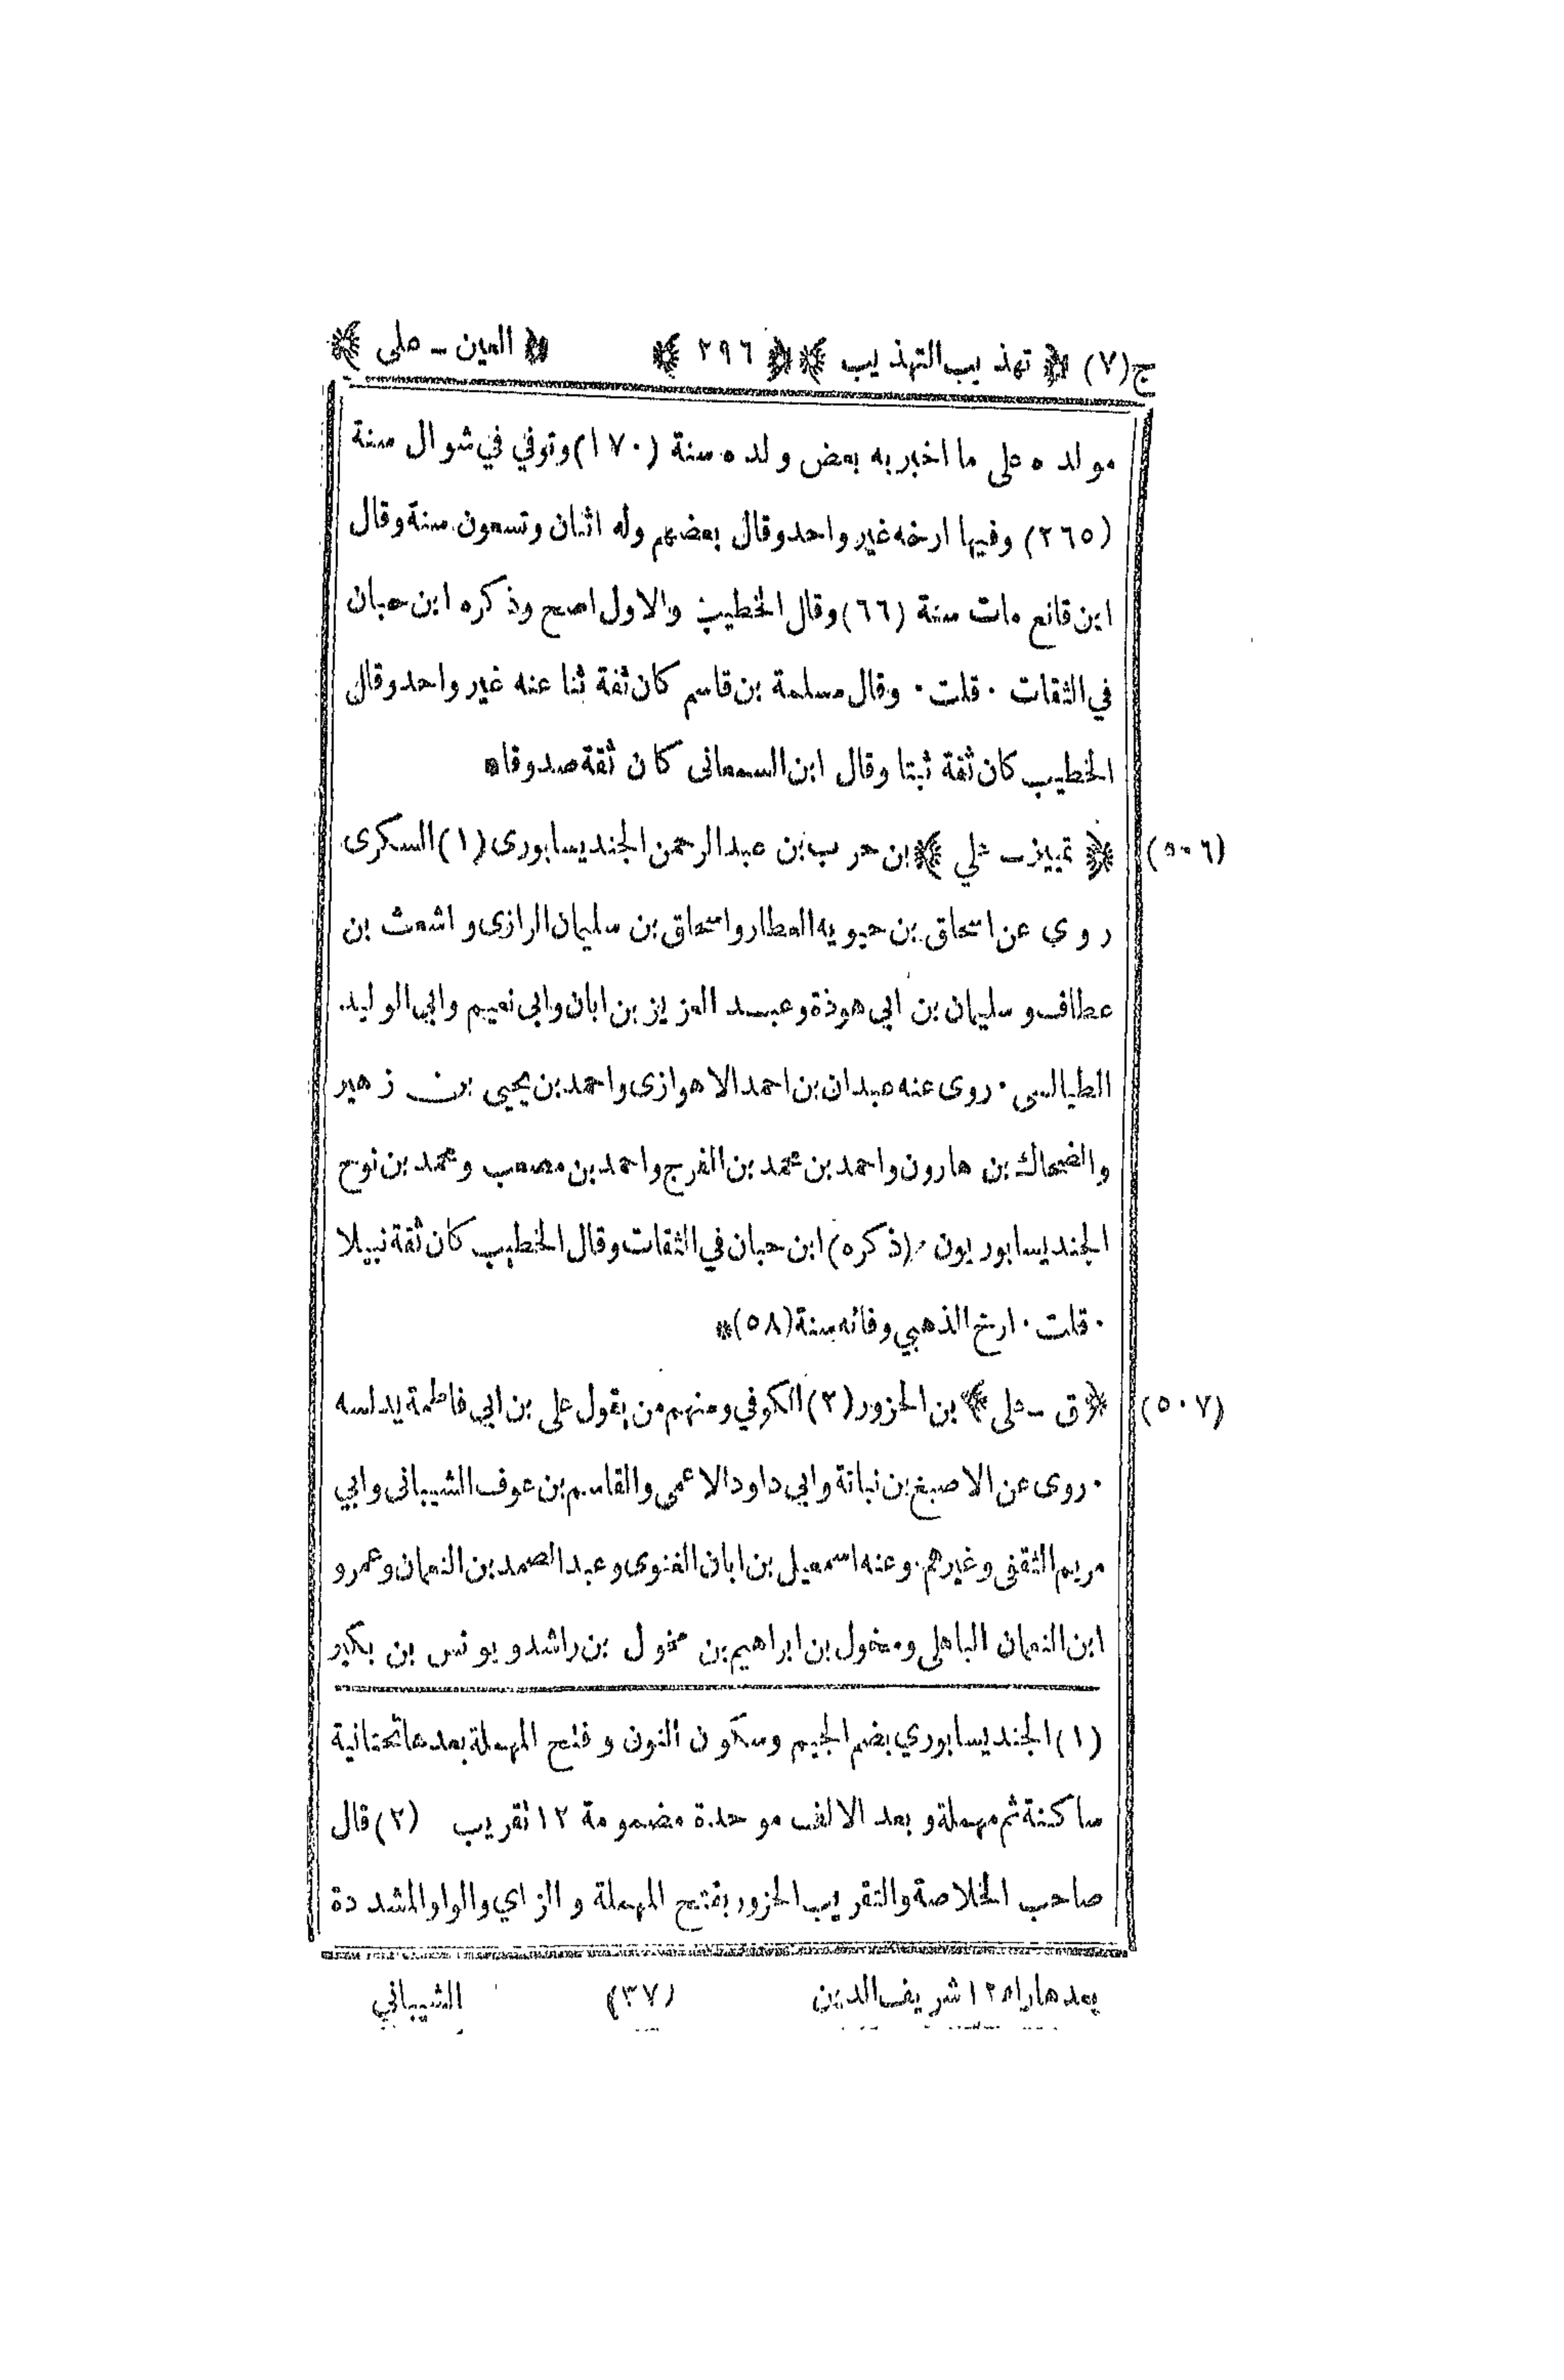 ج(٧) ﴿ تهذيب التهذيب ﴾ ﴿ ٢٩٦ ﴾ ﴿ العين ـ على ﴾
مولده على ما اخبر به بعض ولده سنة (١٧٠) وتوفي في شوال سنة
(٢٦٥) وفيها ارخه غير واحد وقال بعضهم وله اثنان وتسعون سنة وقال
ابن قانع مات سنة (٦٦) وقال الخطيب والاول اصح وذكره ابن حبان
في الثقات · قلت · وقال مسلمة بن قاسم كان ثقة ثنا عنه غير واحد وقال
الخطيب كان ثقة ثبتا وقال ابن السمعانى كان ثقة صدوقا*
(٥٠٦) ﴿ تمييز ـ علي ﴾ بن حرب بن عبدالرحمن الجنديسابورى (١) السكرى
روي عن اسحاق بن حيويه العطار واسحاق بن سليمان الرازى واشعث بن
عطاف وسليمان بن ابي هوذة وعبد العزيز بن ابان وابى نعيم وابي الوليد
الطيالسى · روى عنه عبدان بن احمد الاهوازى واحمد بن يحيى بن زهير
والضحاك بن هارون واحمد بن محمد بن الفرج واحمد بن مصعب ومحمد بن نوح
الجنديسابوريون · (ذكره) ابن حبان في الثقات وقال الخطيب كان ثقة نبيلا
· قلت · ارخ الذهبي وفاته سنة (٥٨)*
(٥٠٧) ﴿ ق ـ على ﴾ بن الحزور (٢) الكوفي ومنهم من يقول على بن ابي فاطمة يدلسه
· روى عن الاصبغ بن نباتة وابي داود الاعمى والقاسم بن عوف الشيبانى وابي
مريم الثقفى وغيرهم · وعنه اسمعيل بن ابان الغنوى وعبدالصمد بن النعمان وعمرو
ابن النعمان الباهلى ومخول بن ابراهيم بن مخول بن راشد ويونس بن بكير
(١) الجنديسابوري بضم الجيم وسكون النون وفتح المهملة بعدها تحتانية
ساكنة ثم مهملة وبعد الالف موحدة مضمومة ١٢ تقريب (٢) قال
صاحب الخلاصة والتقريب الحزور بفتح المهملة والزاي والواو المشددة
بعدها راء ١٢ شريف الدين (٣٧) الشيباني